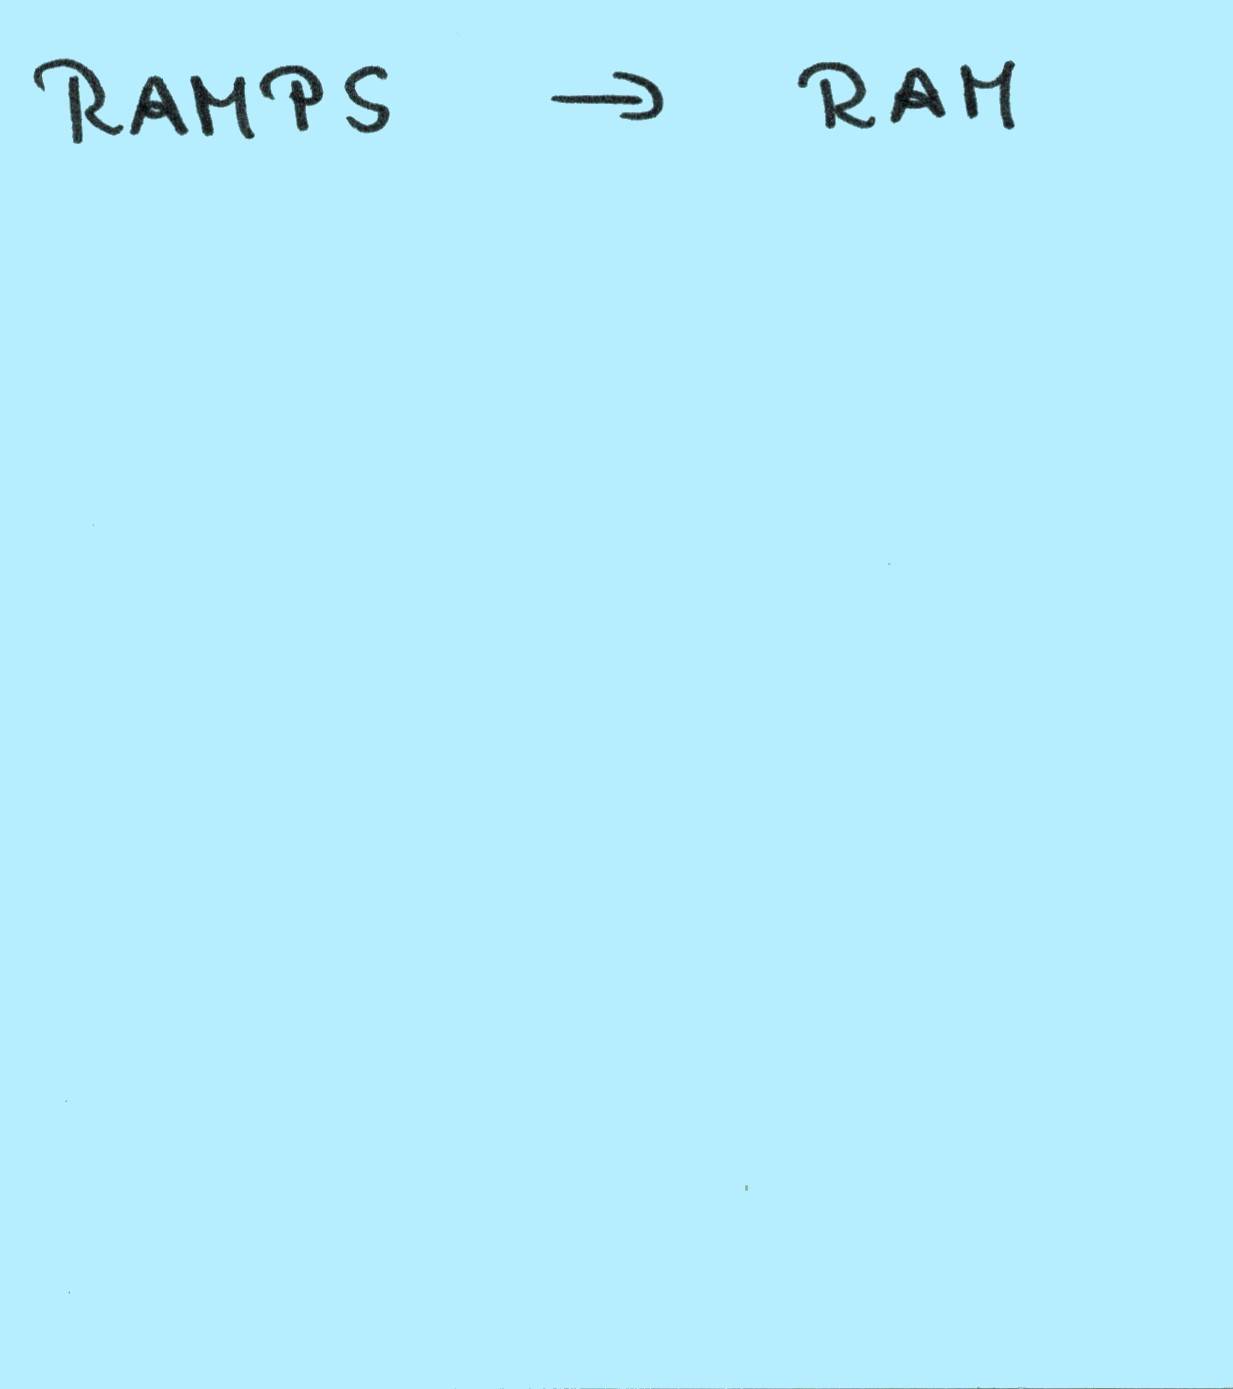 RAMPS → RAM